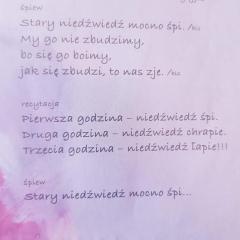 śpiew
Stary niedźwiedź mocno śpi. /bis
My go nie zbudzimy,
bo się go boimy,
jak się zbudzi, to nas zje. /bis
recytacja
Pierwsza godzina – niedźwiedź śpi.
Druga godzina – niedźwiedź chrapie.
Trzecia godzina – niedźwiedź łapie!!!
śpiew
Stary niedźwiedź mocno śpi...